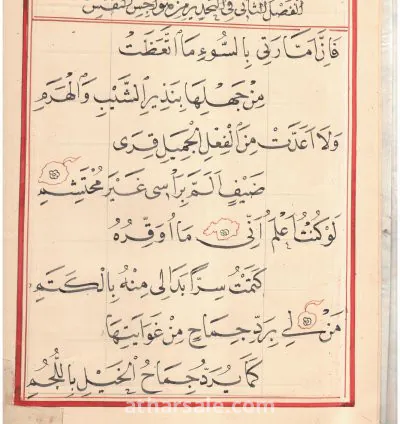 الفصل الثانى فى التحذير من هواجس النفس
فَاِنَّ اَمَّارَتِى بِالسُّوءِ مَا اتَّعَظَتْ
مِنْ جَهْلِهَا بِنَذِيرِ الشَّيْبِ وَالْهَرَمِ
وَلَا اَعَدَّتْ مِنَ الْفِعْلِ الْجَمِيلِ قِرَى
ضَيْفٍ اَلَمَّ بِرَأْسِى غَيْرَ مُحْتَشِمِ
لَوْ كُنْتُ اَعْلَمُ اَنِّى مَا اُوَقِّرُهُ
كَتَمْتُ سِرًّا بَدَا لِى مِنْهُ بِالْكَتَمِ
مَنْ لِى بِرَدِّ جِمَاحٍ مِنْ غَوَايَتِهَا
كَمَا يُرَدُّ جِمَاحُ الْخَيْلِ بِاللُّجُمِ
atharsale.com